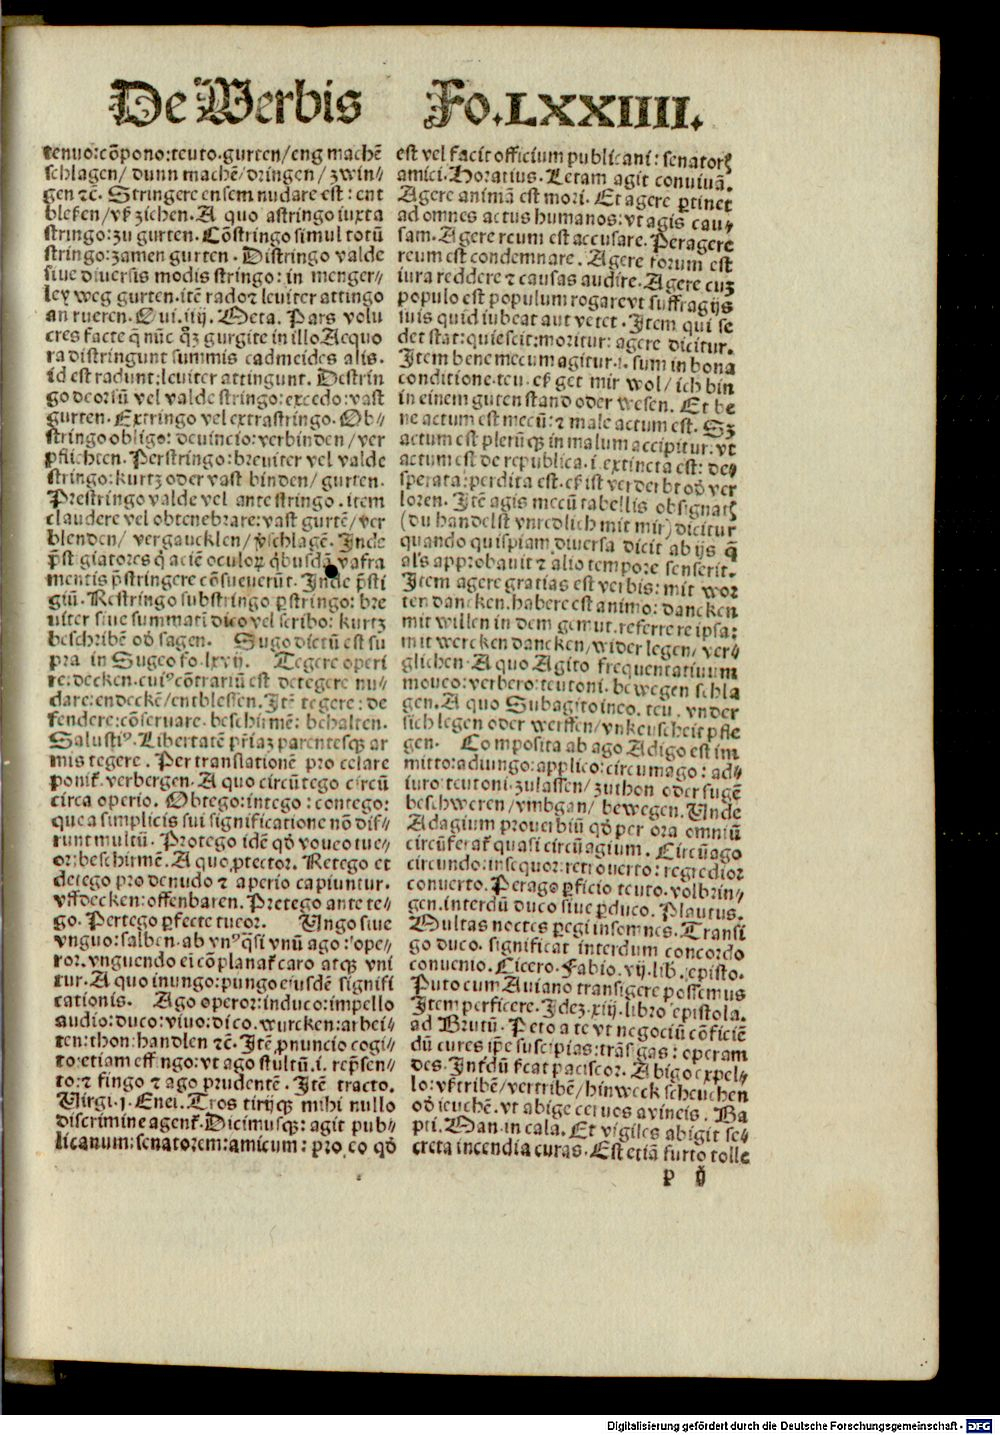 De Verbis Fo.LXXIIII.
tenuo:cõpono:teuto.gurten/eng machẽ
schlagen/ dunn machẽ/dringen/ zwin-
gen ⁊c̃. Stringere ensem nudare est: ent
bleken/vß ziehen. A quo astringo iuxta
stringo:zu gurten. Cõstringo simul totũ
stringo:zamen gurten. Distringo valde
siue diuersis modis stringo: in menger-
ley weg gurten.itẽ rado⁊ leuiter attingo
an rueren. Oui.iiij. Meta. Pars volu
cres facte q̃ nũc qꝫ gurgite in illo Aequo
ra distringunt summis cadmeides alis.
id est radunt:leuiter attingunt. Destrin
go deorsũ vel valde stringo:excedo:vast
gurten. Extringo vel extrastringo. Ob-
stringo obligo: deuincio:verbinden/ver
pflichten. Perstringo:breuiter vel valde
stringo:kurtz oder vast binden/ gurten.
Prestringo valde vel ante stringo. item
claudere vel obtenebrare:vast gurtẽ/ver
blenden/ vergaucklen/ v̾schlagẽ. Inde
p̃stigiatores q̃ aciẽ oculoꝝ qͥbusdã vafra
mentis p̃stringere cõsueuerũt. Inde p̃sti
giũ. Restringo substringo ꝑstringo: bre
uiter siue summati dico vel scribo: kurtz
beschribẽ od̾ sagen. Sugo dictũ est su
pra in Sugeo fo.lxvij. Tegere operi
re:decken.cuiꝰ cõtrariũ est detegere nu-
dare:endeckẽ/entblessen. Itẽ tegere: de
fendere:cõseruare. beschirmẽ: behalten.
Salustiꝰ. Libertatẽ pr̃iaꝫ parentesqꝫ ar
mis tegere. Per translationẽ pro celare
ponit̃. verbergen. A quo circũtego circũ
circa operio. Obtego:intego: contego:
que a simplicis sui significatione nõ dif-
runt multũ. Protego idẽ qd̾ voueo tue-
or:beschirmẽ. A quo ꝓtector. Retego et
detego pro denudo ⁊ aperio capiuntur.
vffdecken:offenbaren. Pretego ante te-
go. Pertego ꝑfecte tucor. Ungo siue
vnguo:salben.ab vnꝰ q̃si vnũ ago: ope-
ror.vnguendo ei cõplanat̃ caro atqꝫ vni
tur. A quo inungo:pungo eiusdẽ signifi
cationis. Ago operor:induco:impello
audio:duco:viuo:dico.wurcken:arbei-
ten:thon:handlen ⁊c̃. Itẽ ꝓnuncio cogi-
to:etiam effingo:vt ago stultũ.i. rep̃sen-
to:⁊ fingo ⁊ ago prudentẽ. Itẽ tracto.
Virgi.j. Enei. Tros tirijqꝫ mihi nullo
discrimine agent̃. Dicimusqꝫ: agit pub-
licanum:senatorem:amicum: pro eo qd̾
est vel facit officium publicani: senatorꝭ
amici. Horatius. Letam agit conuiuã.
Agere animã est mori. Et agere ꝑtinet
ad omnes actus humanos: vt agis cau-
sam. Agere reum est accusare. Peragere
reum est condemnare. Agere forum est
iura reddere ⁊ causas audire. Agere cuꝫ
populo est populum rogare vt suffragijs
suis quid iubeat aut vetet. Item qui se
det stat: quiescit: moritur: agere dicitur.
Item bene mecum agitur.i. sum in bona
conditione.teu. eß get mir wol/ ich bin
in einem guten stand oder wesen. Et be
ne actum est mecũ: ⁊ male actum est. Sꝫ
actum est plerũqꝫ in malum accipitur: vt
actum est de republica.i. extincta est: de-
sperata: perdita est. eß ist verderbt od̾ ver
loren. Itẽ agis mecũ tabellis obsignatꝭ
(du handelst vnredlich mit mir) dicitur
quando quispiam diuersa dicit ab ijs q̃
als approbauit ⁊ alio tempore senserit.
Item agere gratias est verbis: mit wor
ten dancken. habere est animo: dancken
mit willen in dem gemut. referre re ipsa:
mit wercken dancken/wider legen/ ver-
glichen. A quo Agito frequentatiuum
moueo: verbero: teutoni. bewegen schla
gen. A quo Subagito inco. teu. vnder
sich legen oder werffen/vnkeuscheit pfle
gen. Composita ab ago. Adigo est im
mitto: adiungo: applico: circumago: ad-
iuro: teutoni. zulassen/ zuthon oder fugẽ
beschweren/vmbgan/ bewegen. Unde
Adagium prouerbiũ qd̾ per ora omniũ
circũferat̃ quasi circũagium. Circũago
circundo: insequor: retrouerto: regredior
conuerto. Perago ꝑficio teuto. volbrin-
gen. interdũ duco siue ꝑduco. Plautus.
Multas noctes ꝑegi insomnes. Transi
go duco. significat interdum concordo
conuenio. Cicero. Fabio. vij. lib. episto.
Puto cum Auiano transigere possemus
Item perficere. Idez. xiij. libro epistola.
ad Brutũ. Peto a te vt negociũ cõficiẽ
dũ cures ip̃e suscipias: trãsigas: operam
des. Int̾dũ ſicat paciscor. Abigo expel-
lo: vßtribẽ/vertribẽ/hinweck scheuchen
od̾ ieuchẽ. vt abige ceruos a vineis. Ba
pti. Man. in cala. Et vigiles abigit se-
creta incendia curas. Est etiã furto tolle
p ij
Digitalisierung gefördert durch die Deutsche Forschungsgemeinschaft - DFG